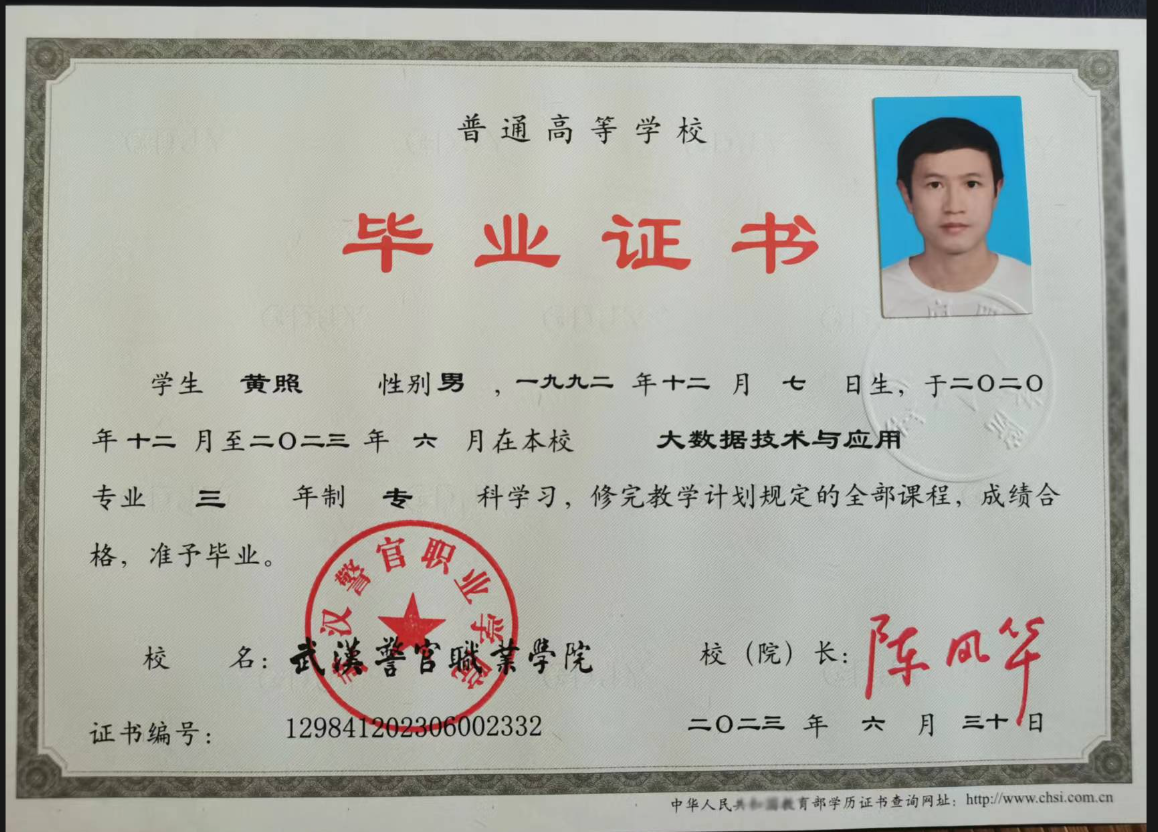 普通高等学校
毕业证书
学生 黄照 性别 男 ，一九九二 年 十二 月 七 日生，于二〇二〇
年 十二 月至二〇二三 年 六 月在本校 大数据技术与应用
专业 三 年制 专 科学习，修完教学计划规定的全部课程，成绩合
格，准予毕业。
武汉警官职业学院
校 名：武漢警官職業學院
校（院）长：陈凤华
证书编号：129841202306002332
二〇二三 年 六 月 三十 日
中华人民共和国教育部学历证书查询网址：http://www.chsi.com.cn